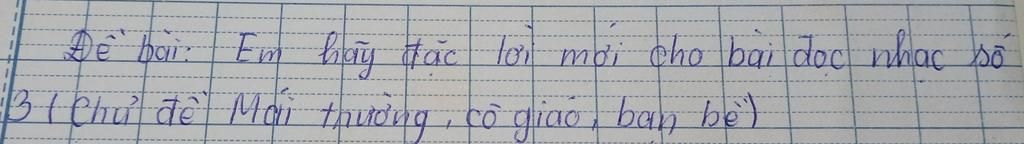 Đề bài: Em hãy đặc lời mới cho bài đọc nhạc số
3 (Chủ đề Mái trường, cô giáo, bạn bè)